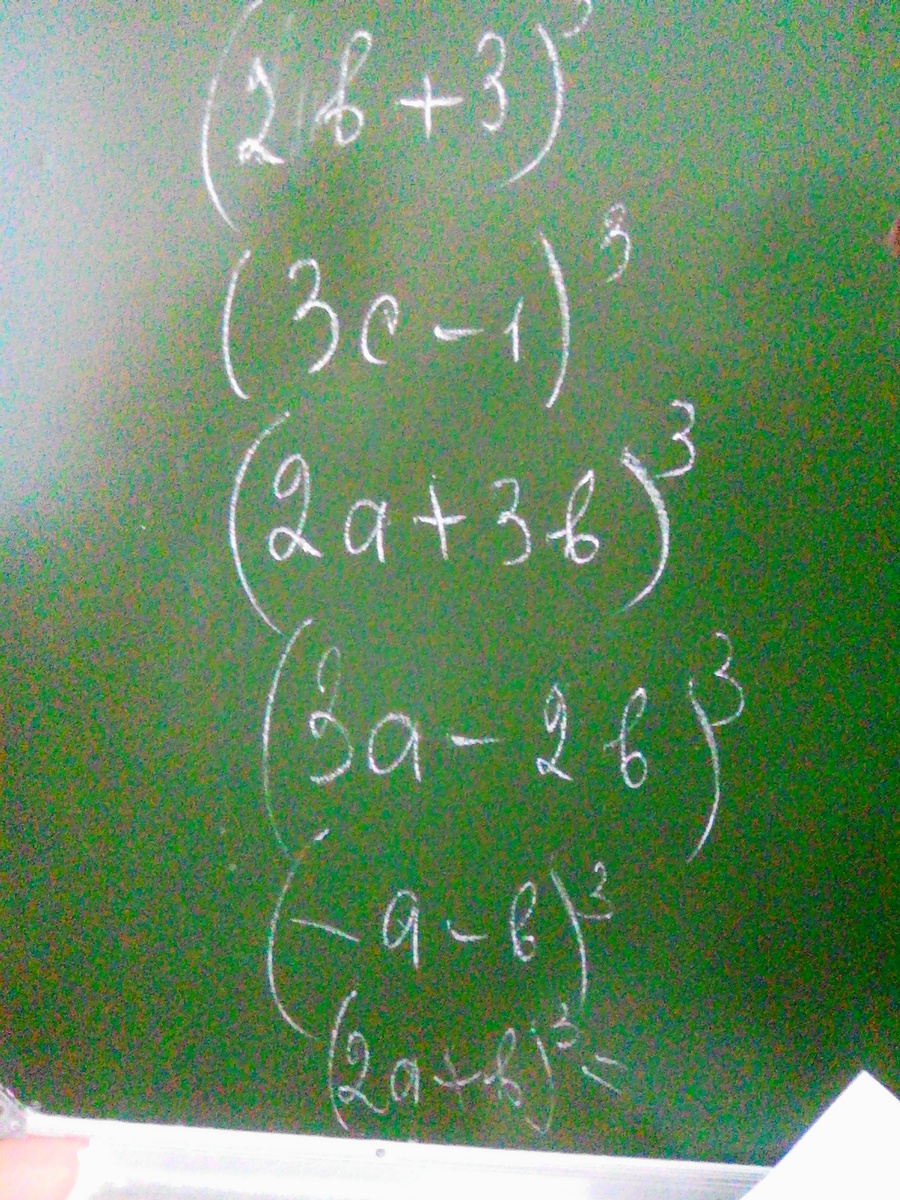 (2b+3)³
(3c-1)³
(2a+3b)³
(3a-2b)³
(-a-b)³
(2a+b)³=